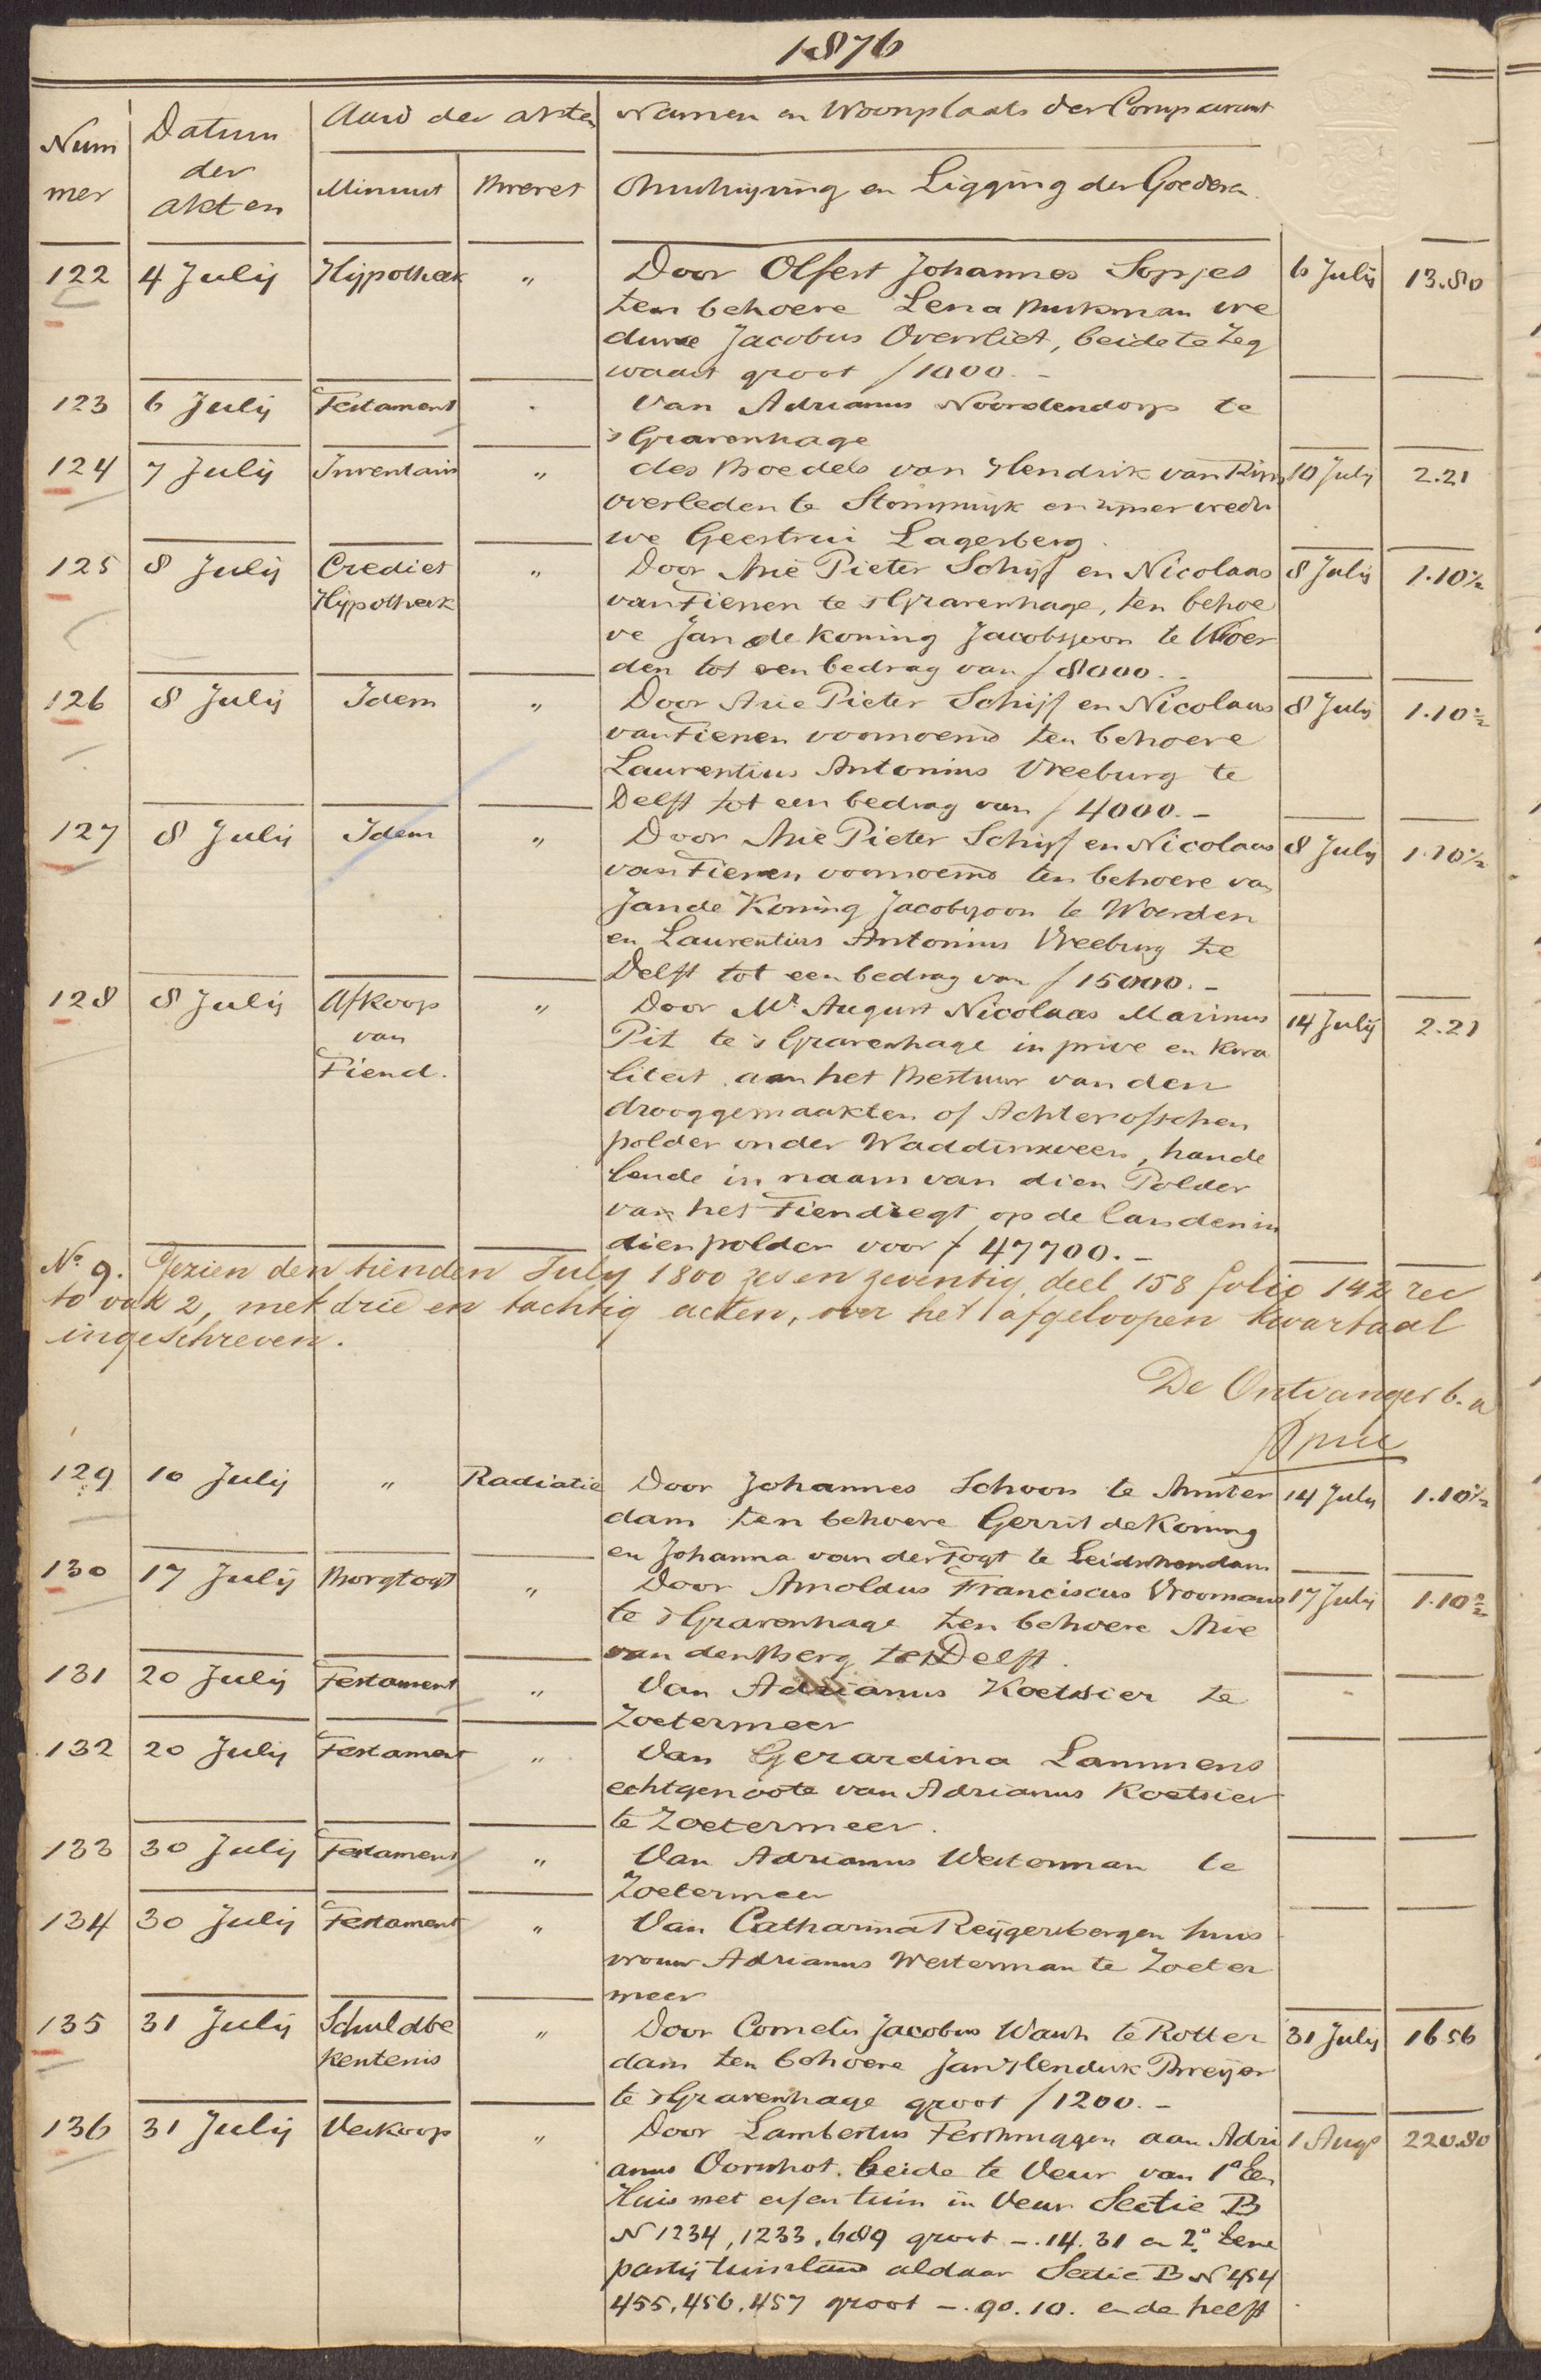 1876
Nummer Datum der akten Aard der akten Namen en Woonplaats der Comparant
Minuut Brevet Omschrijving en Ligging der Goederen
122 4 Julij Hijpotheek „ Door Olfert Johannes Sopjes 6 Julij 13.80
ten behoeve Lena Burkman we
duwe Jacobus Overvliet, beide te Zeg
waart groot ƒ 1000.-
123 6 Julij Testament „ Van Adrianus Noordendorp te
'sGravenhage
124 7 Julij Inventaris „ des Boedels van Hendrik van Rijn 10 Julij 2.21
overleden te Stompwijk en zijner wedu
we Geertrui Lagerberg.
125 8 Julij Crediet „ Door Arie Pieter Schijf en Nicolaas 8 Julij 1.10½
Hijpotheek van Tienen te 'sGravenhage, ten behoe
ve Jan de Koning Jacobszoon te Woer
den tot een bedrag van ƒ 8000.-
126 8 Julij Idem „ Door Arie Pieter Schijf en Nicolaas 8 Julij 1.10½
van Tienen voornoemd ten behoeve
Laurentius Antonius Vreeburg te
Delft tot een bedrag van ƒ 4000.-
127 8 Julij Idem „ Door Arie Pieter Schijf en Nicolaas 8 Julij 1.10½
van Tienen voornoemd ten behoeve van
Jan de Koning Jacobszoon te Woerden
en Laurentius Antonius Vreeburg te
Delft tot een bedrag van ƒ 15000.-
128 8 Julij Afkoop „ Door Mr. August Nicolaas Marinus 14 Julij 2.21
van Pit te 'sGravenhage in prive en kwa
Tiend. liteit aan het Bestuur van den
drooggemaakten of Achterofschen
polder onder Waddinxveen, hande
lende in naam van dien Polder
van het Tiendregt op de landen in
dien polder voor ƒ 47700.-
No. 9. Gezien den tienden July 1800 zes en zeventig, deel 158 folio 142 rec
to vak 2, met drie en tachtig acten, over het afgeloopen kwartaal
ingeschreven.
De Ontvanger b. a
129 10 Julij „ Radiatie Door Johannes Schoon te Amster 14 Julij 1.10½
dam ten behoeve Gerrit de Koning
en Johanna van der Togt te Leidschendam
130 17 Julij Borgtogt „ Door Arnoldus Franciscus Vroomans 17 Julij 1.10½
te 'sGravenhage ten behoeve Arie
van den Berg te Delft.
131 20 Julij Testament „ Van Adrianus Koetsier te
Zoetermeer
132 20 Julij Testament „ Van Gerardina Lammens
echtgenoote van Adrianus Koetsier
te Zoetermeer.
133 30 Julij Testament „ Van Adrianus Westerman te
Zoetermeer
134 30 Julij Testament „ Van Catharina Reijgersbergen huis
vrouw Adrianus Westerman te Zoeter
meer
135 31 Julij Schuldbe „ Door Cornelis Jacobus te Rotter 31 Julij 16 56
kentenis dam ten behoeve Jan Hendrik Breijer
te 'sGravenhage groot ƒ 1200.-
136 31 Julij Verkoop „ Door Lambertus aan Adri 1 Augs 220.80
anus beide te Veur van 1o Een
Huis met erf en tuin in Veur Sectie B
N 1234, 1233, 689 groot -.14.31 en 2o Eene
partij tuinland aldaar Sectie B N 454
455, 456, 457 groot -.90.10. en de helft